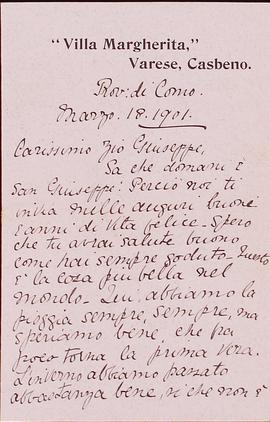 "Villa Margherita,"
Varese, Casbeno.
Prov: di Como.
Marzo. 18. 1901.
Carissimo Zio Giuseppe,
Sa che domani è
San Giuseppe: Perciò noi ti
mille auguri buoni
e anni di vita felice - Spero
che tu avrai salute buono
come hai sempre goduto - Questo
è la cosa più bella nel
mondo - Qui, abbiamo la
pioggia sempre, sempre, ma
speriamo bene, che fra
poco torna la prima vera.
L'inverno abbiamo passato
abbastanza bene, si che non è